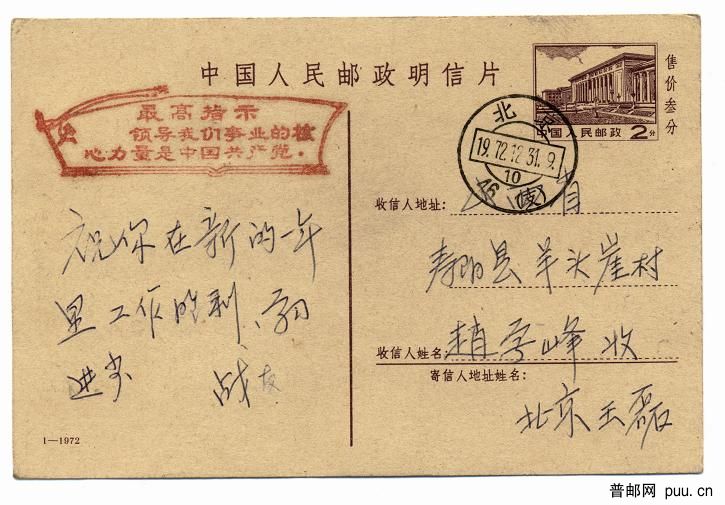 中国人民邮政明信片
售价叁分
中国人民邮政 2分
最高指示
领导我们事业的核
心力量是中国共产党.
北京
19.72.12.31.9.
10
46 (支)
祝你在新的一年
里工作胜利、学习
进步 战友
收信人地址: 山西省
寿阳县羊头崖村
收信人姓名: 赵 峰 收
寄信人地址姓名:
北京 王磊
1—1972
普邮网 puu.cn